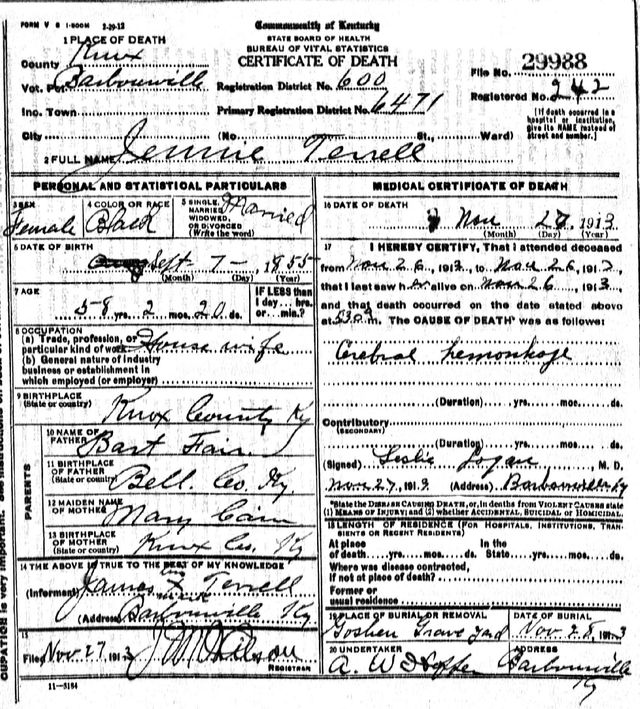 FORM V S 1-500M 2-20-12
Commonwealth of Kentucky
STATE BOARD OF HEALTH
BUREAU OF VITAL STATISTICS
CERTIFICATE OF DEATH
1 PLACE OF DEATH
County Knox
Vot. Pct. Barbourville
Inc. Town
City
Registration District No. 600
Primary Registration District No. 6471
(No. St., Ward)
File No. 29988
Registered No. 242
[If death occurred in a
hospital or institution,
give its NAME instead of
street and number.]
2 FULL NAME Jennie Terrell
PERSONAL AND STATISTICAL PARTICULARS
3 SEX
Female
4 COLOR OR RACE
Black
5 SINGLE,
MARRIED,
WIDOWED,
OR DIVORCED
(Write the word)
Married
6 DATE OF BIRTH
Sept 7 - 1855
(Month) (Day) (Year)
7 AGE
58 yrs. 2 mos. 20 ds.
IF LESS then
1 day....hrs.
or....min.?
8 OCCUPATION
(a) Trade, profession, or
particular kind of work House wife
(b) General nature of industry
business or establishment in
which employed (or employer)
9 BIRTHPLACE
(State or country)
Knox County Ky
PARENTS
10 NAME OF
FATHER
Bart Fair
11 BIRTHPLACE
OF FATHER
(State or country)
Bell Co. Ky
12 MAIDEN NAME
OF MOTHER
Mary Cain
13 BIRTHPLACE
OF MOTHER
(State or country)
Knox Co. Ky
14 THE ABOVE IS TRUE TO THE BEST OF MY KNOWLEDGE
(Informant) James X Terrell
mark
(Address) Barbourville Ky
15
Filed Nov 27 1913
REGISTRAR
11-5184
MEDICAL CERTIFICATE OF DEATH
16 DATE OF DEATH
Nov 27, 1913
(Month) (Day) (Year)
17 I HEREBY CERTIFY, That I attended deceased
from Nov 26, 1913, to Nov 26, 1913
that I last saw her alive on Nov 26, 1913,
and that death occurred on the date stated above
at m. The CAUSE OF DEATH* was as follows:
Cerebral hemorrhage
(Duration) yrs. mos. ds.
Contributory
(SECONDARY)
(Duration) yrs. mos. ds.
(Signed) Leslie Logan, M. D.
Nov 27, 191 (Address) Barbourville Ky
*State the DISEASE CAUSING DEATH, or, in deaths from VIOLENT CAUSES state
(1) MEANS OF INJURY; and (2) whether ACCIDENTAL, SUICIDAL or HOMICIDAL.
18 LENGTH OF RESIDENCE (FOR HOSPITALS, INSTITUTIONS, TRAN-
SIENTS OR RECENT RESIDENTS)
At place In the
of death....yrs....mos....ds. State....yrs....mos....ds.
Where was disease contracted,
if not at place of death?
Former or
usual residence
19 PLACE OF BURIAL OR REMOVAL
Goshen Grave yard
DATE OF BURIAL
Nov. 28, 1913
20 UNDERTAKER
A. W.
ADDRESS
Barbourville
Ky